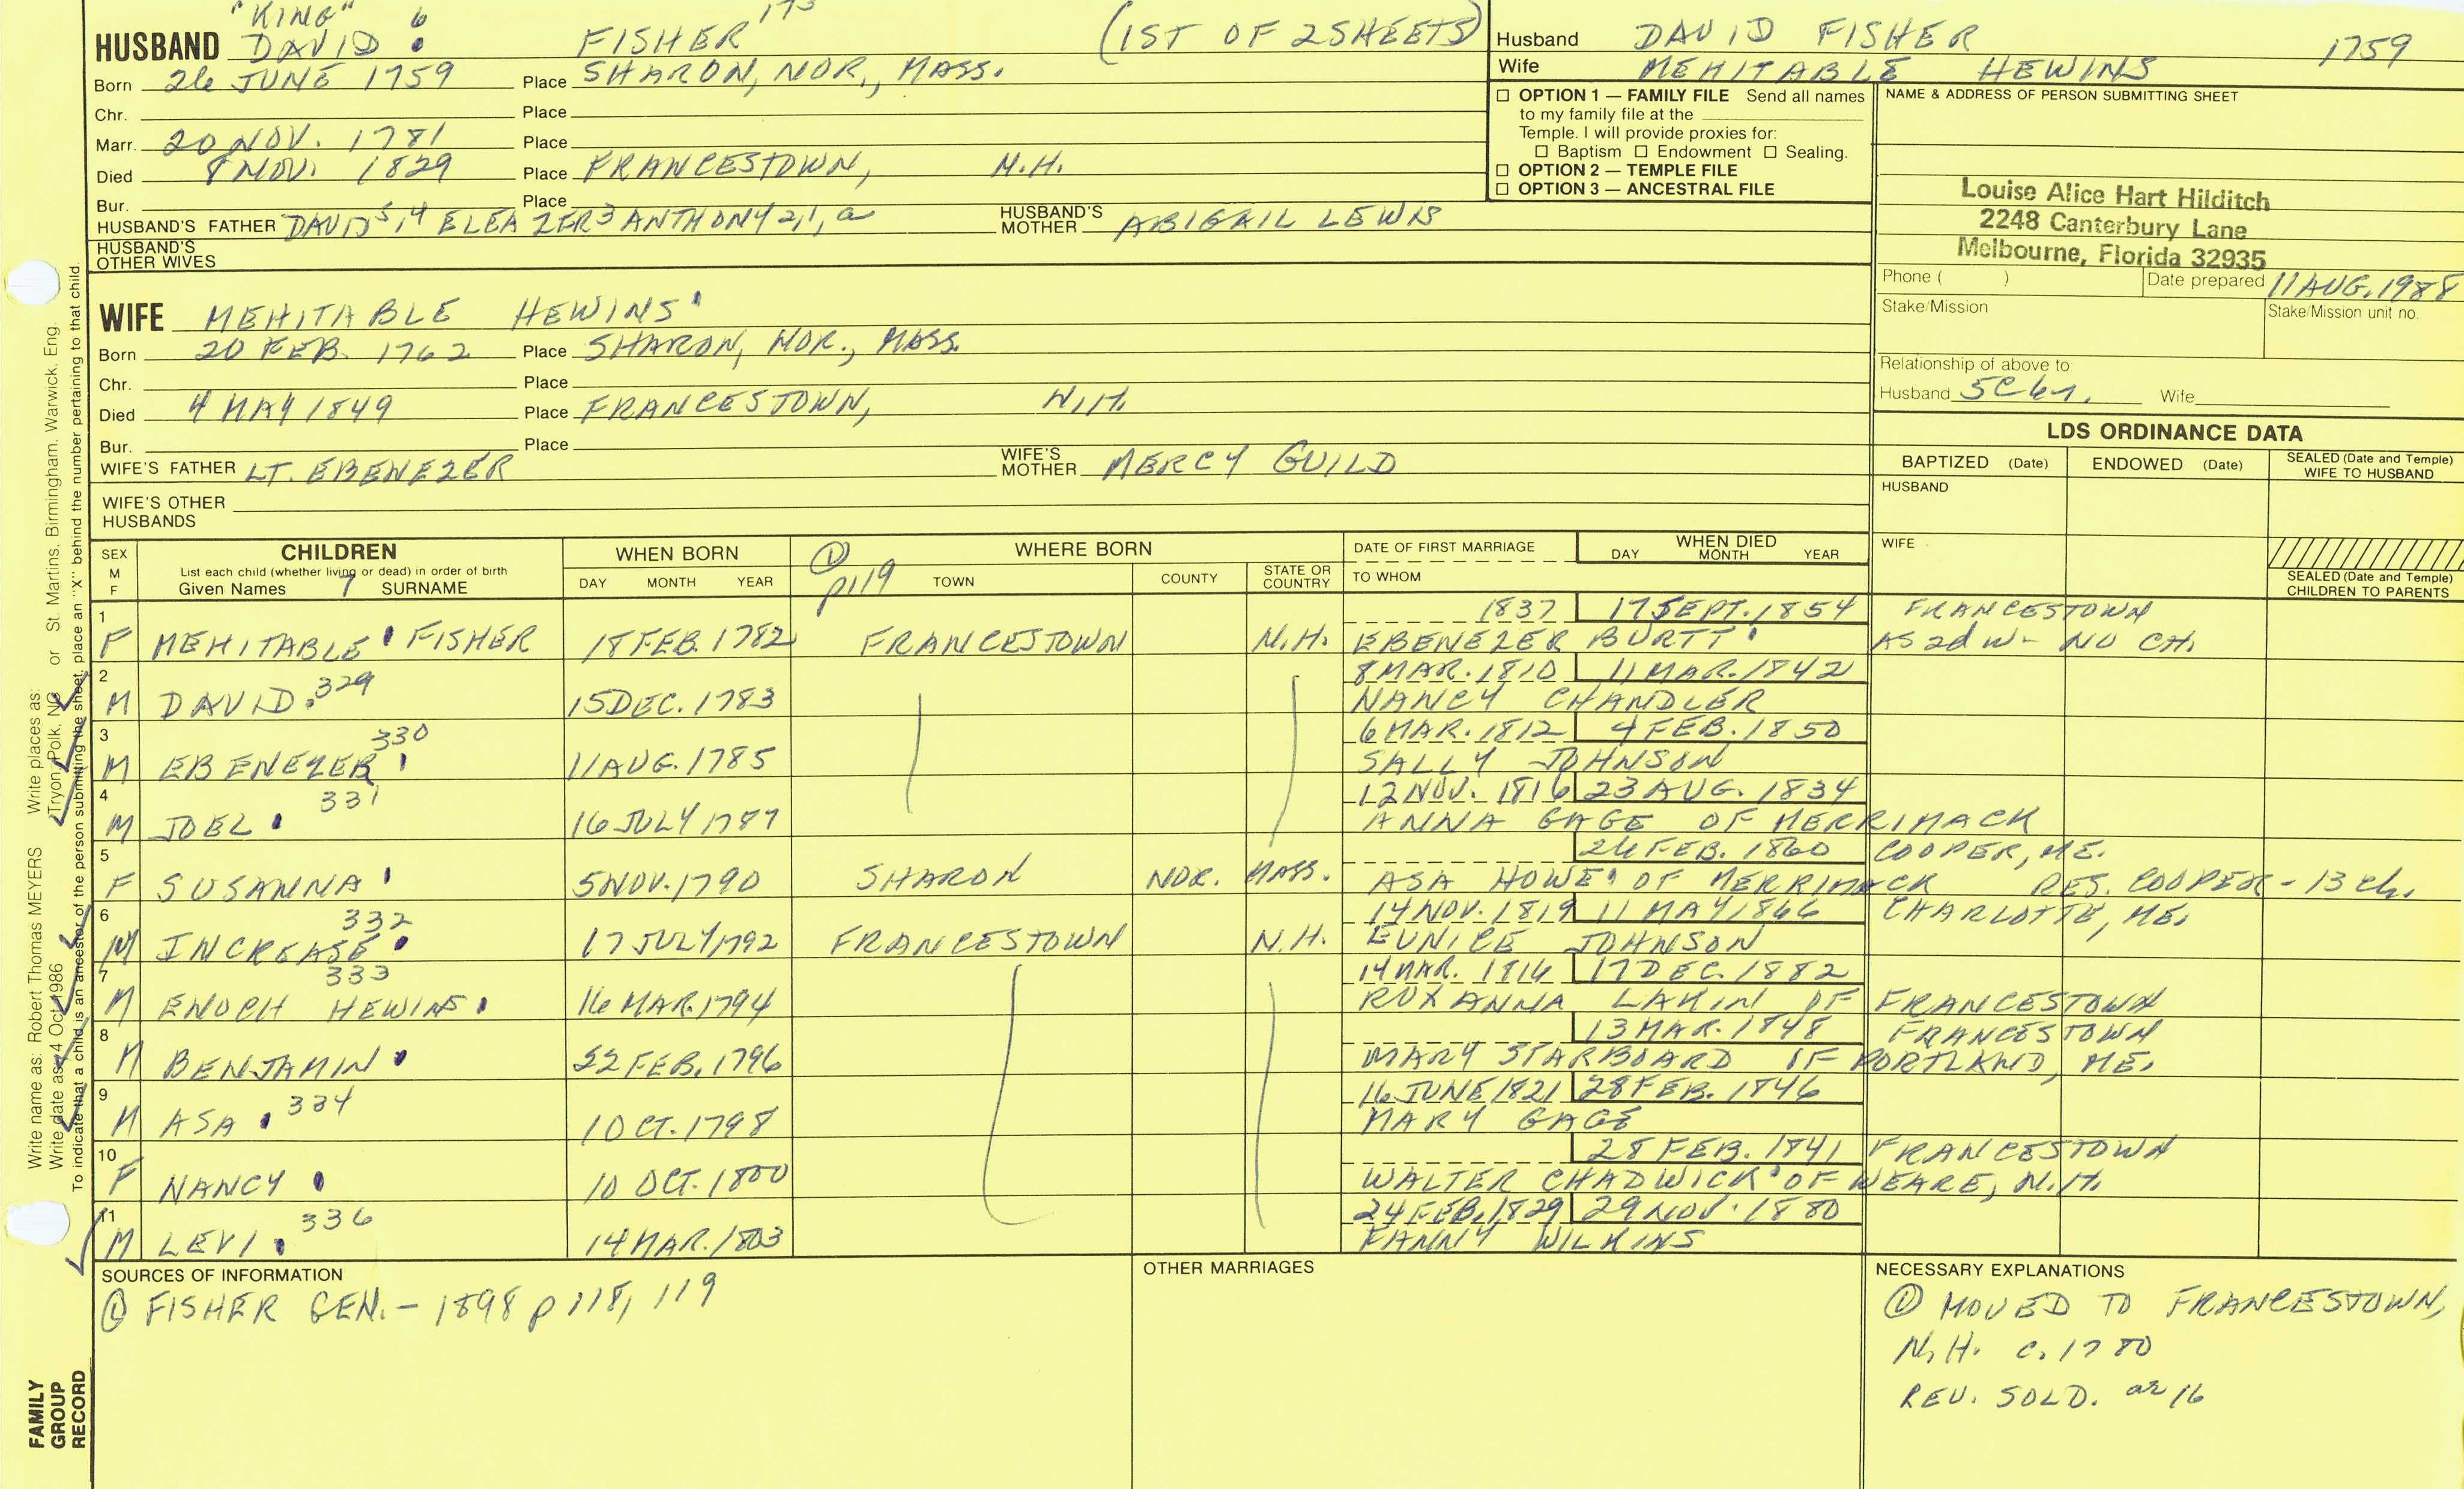 "KING"
HUSBAND DAVID 6 FISHER 173 (1ST OF 2 SHEETS)
Born 26 JUNE 1759 Place SHARON, NOR., MASS.
Chr. Place
Marr. 20 NOV. 1781 Place
Died 8 NOV. 1829 Place FRANCESTOWN, N.H.
Bur. Place
HUSBAND'S FATHER DAVID 5,4 ELEAZER 3 ANTHONY 2,1,a HUSBAND'S MOTHER ABIGAIL LEWIS
HUSBAND'S OTHER WIVES
Husband DAVID FISHER 1759
Wife MEHITABLE HEWINS
☐ OPTION 1 — FAMILY FILE Send all names
to my family file at the
Temple. I will provide proxies for:
☐ Baptism ☐ Endowment ☐ Sealing.
☐ OPTION 2 — TEMPLE FILE
☐ OPTION 3 — ANCESTRAL FILE
NAME & ADDRESS OF PERSON SUBMITTING SHEET
Louise Alice Hart Hilditch
2248 Canterbury Lane
Melbourne, Florida 32935
Phone ( ) Date prepared 11 AUG. 1988
Stake/Mission Stake/Mission unit no.
Relationship of above to:
Husband 5C6r. Wife
WIFE MEHITABLE HEWINS
Born 20 FEB. 1762 Place SHARON, NOR., MASS.
Chr. Place
Died 4 MAY 1849 Place FRANCESTOWN, N.H.
Bur. Place
WIFE'S FATHER LT. EBENEZER WIFE'S MOTHER MERCY GUILD
WIFE'S OTHER HUSBANDS
LDS ORDINANCE DATA
BAPTIZED (Date) ENDOWED (Date) SEALED (Date and Temple) WIFE TO HUSBAND
HUSBAND
WIFE
SEALED (Date and Temple) CHILDREN TO PARENTS
SEX M F CHILDREN WHEN BORN ① p119 WHERE BORN DATE OF FIRST MARRIAGE WHEN DIED
List each child (whether living or dead) in order of birth DAY MONTH YEAR
Given Names 7 SURNAME DAY MONTH YEAR TOWN COUNTY STATE OR COUNTRY TO WHOM
1 1837 17 SEPT. 1854 FRANCESTOWN
F MEHITABLE FISHER 18 FEB. 1782 FRANCESTOWN N.H. EBENEZER BURTT AS 2d W - NO CH.
2 329 8 MAR. 1810 11 MAR. 1842
M DAVID 15 DEC. 1783 NANCY CHANDLER
3 330 6 MAR. 1812 4 FEB. 1850
M EBENEZER 11 AUG. 1785 SALLY JOHNSON
4 331 12 NOV. 1816 23 AUG. 1834
M JOEL 16 JULY 1787 ANNA GAGE OF MERRIMACK
5 26 FEB. 1860 COOPER, ME.
F SUSANNA 5 NOV. 1790 SHARON NOR. MASS. ASA HOWE OF MERRIMACK RES. COOPER - 13 ch.
6 332 14 NOV. 1819 11 MAY 1866 CHARLOTTE, ME.
M INCREASE 17 JULY 1792 FRANCESTOWN N.H. EUNICE JOHNSON
7 333 14 MAR. 1816 17 DEC. 1882
M ENOCH HEWINS 16 MAR. 1794 ROXANNA LAKIN OF FRANCESTOWN
8 13 MAR. 1848 FRANCESTOWN
M BENJAMIN 22 FEB. 1796 MARY STARBOARD OF PORTLAND, ME.
9 334 16 JUNE 1821 28 FEB. 1846
M ASA 1 OCT. 1798 MARY GAGE
10 28 FEB. 1841 FRANCESTOWN
F NANCY 10 OCT. 1800 WALTER CHADWICK OF WEARE, N.H.
11 336 24 FEB. 1829 29 NOV. 1880
M LEVI 14 MAR. 1803 FANNY WILKINS
SOURCES OF INFORMATION
① FISHER GEN. - 1898 p 118, 119
OTHER MARRIAGES
NECESSARY EXPLANATIONS
① MOVED TO FRANCESTOWN,
N.H. C. 1780
REV. SOLD. at 16
Write name as: Robert Thomas MEYERS Write places as: Tryon, Polk, NC or St. Martins, Birmingham, Warwick, Eng.
Write date as: 4 Oct 1986
To indicate that a child is an ancestor of the person submitting the sheet, place an "X" behind the number pertaining to that child.
FAMILY
GROUP
RECORD